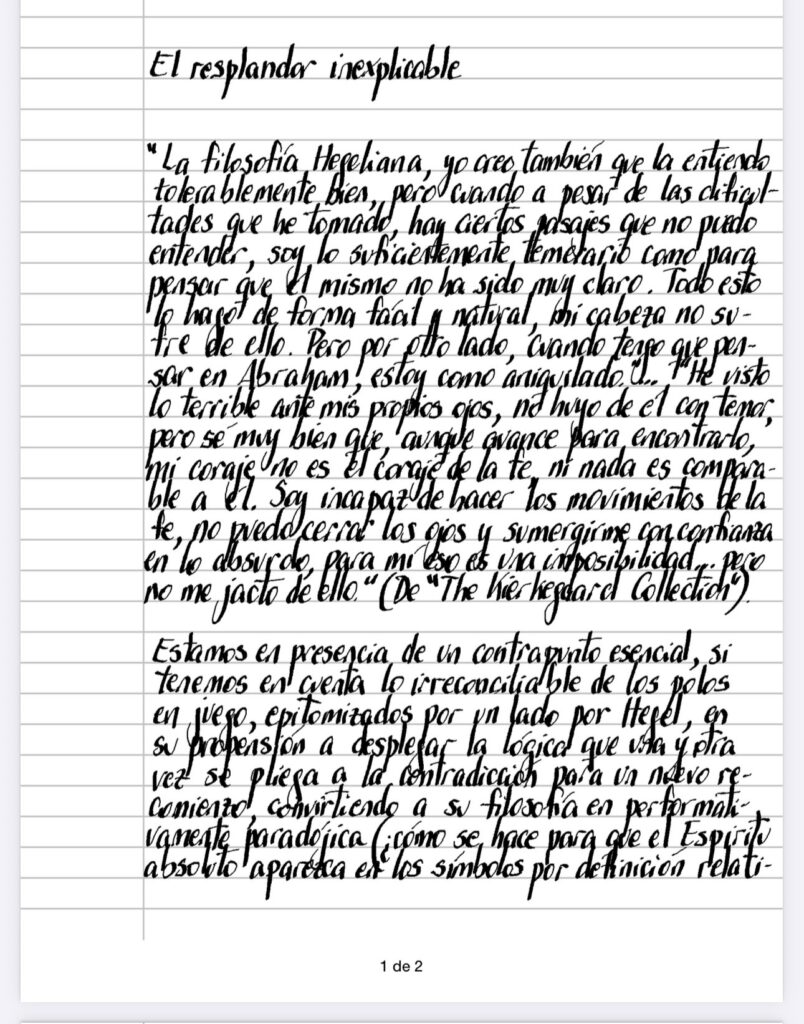 El resplandor inexplicable
"La filosofía Hegeliana, yo creo también que la entiendo
tolerablemente bien, pero cuando a pesar de las dificul-
tades que he tomado, hay ciertos pasajes que no puedo
entender, soy lo suficientemente temerario como para
pensar que él mismo no ha sido muy claro. Todo esto
lo hago de forma fácil y natural, mi cabeza no su-
fre de ello. Pero por otro lado, cuando tengo que pen-
sar en Abraham, estoy como aniquilado."... "He visto
lo terrible ante mis propios ojos, no huyo de él con temor,
pero sé muy bien que, aunque avance para encontrarlo,
mi coraje no es el coraje de la fe, ni nada es compara-
ble a él. Soy incapaz de hacer los movimientos de la
fe, no puedo cerrar los ojos y sumergirme con confianza
en lo absurdo, para mí eso es una imposibilidad... pero
no me jacto de ello." (De "The Kierkegaard Collection").
Estamos en presencia de un contrapunto esencial, si
tenemos en cuenta lo irreconciliable de los polos
en juego, epitomizados por un lado por Hegel, en
su propensión a desplegar la lógica que una y otra
vez se pliega a la contradicción para un nuevo re-
comienzo, convirtiendo a su filosofía en performati-
vamente paradójica (¿cómo se hace para que el Espíritu
absoluto aparezca en los símbolos por definición relati-
1 de 2